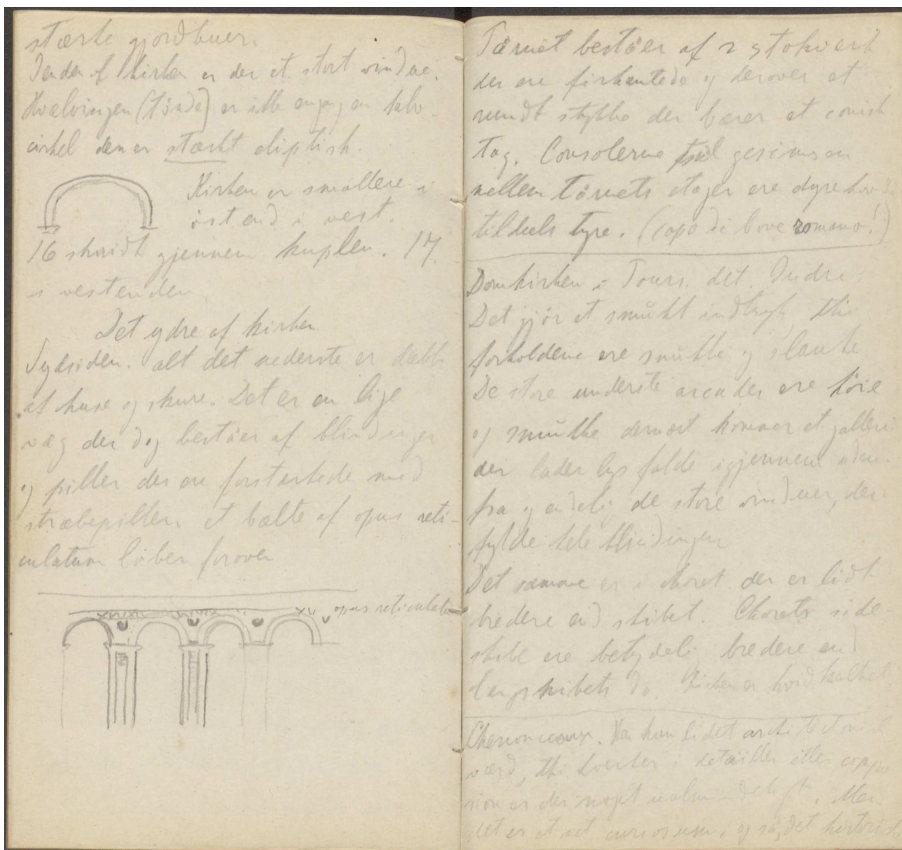 stærke gjordbuer.
Inden i kirken er der et stort vindue.
Hvælvingen (tønde) er ikke engang en halv-
cirkel den er stærkt eliptisk.
Kirken er smallere i
øst end i vest.
16 skridt gjennem kuplen. 17
i vestenden
Det ydre af kirken
Sydsiden. alt det nederste er dækket
af huse og skure. Det er en lige
væg der dog bestaaer af blindinger
og piller der ere forstærkede med
stræbepiller et bælte af opus reti-
culatum løber foroven
opus reticulatum
Tårnet beståer af 2 stokværk
der ere firkantede og derover et
rundt stykke der bærer et conisk
Tag. Consolerne til gesimsen
mellem tårnets etager ere dyrehoveder
tildeels tyre. (capo di bove romano!)
Domkirken i Tours. det Indre
Det gjør et smukt indtryk, thi
forholdene ere smukke og slanke
De store underste arcader ere høie
og smukke dernæst kommer et galleri
der lader lys falde igjennem uden-
fra og endelig de store vinduer, der
fylde hele blindingen
Det samme er i choret der er lidt
bredere end skibet. Chorets side-
skibe ere betydelig bredere end
langskibets do. Kirken er hvidkalket
Chenonceaux. Har kun lidet architectonisk
værd, thi hverken i detailler eller compo
sion er der noget
det er et curiosum, og